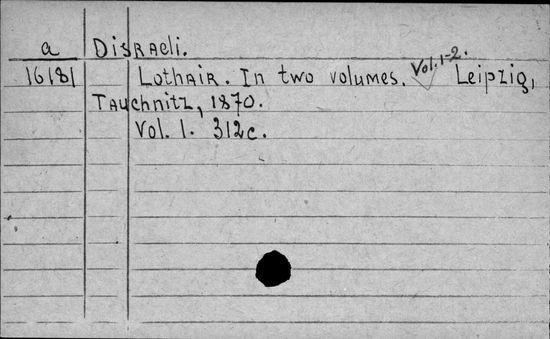 a Disraeli.
16181 Lothair. In two volumes. Vol. 1-2. Leipzig,
Tauchnitz, 1870.
Vol. 1. 312c.